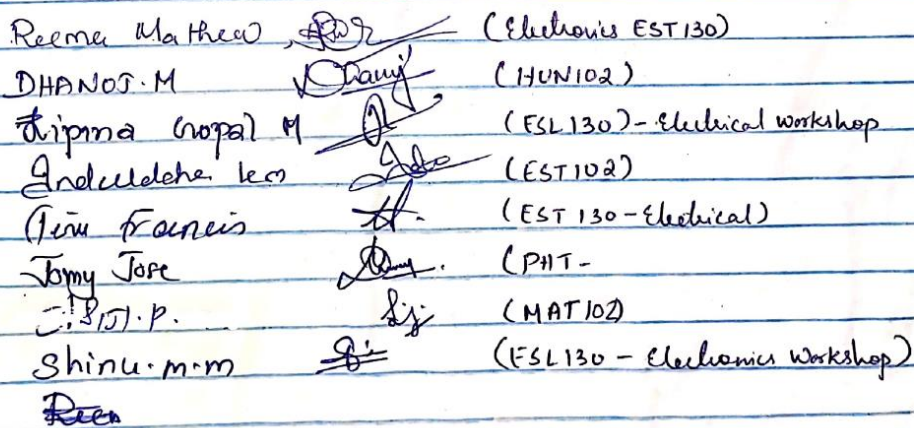 Reema Mathew (Electronics EST 130)
DHANOJ. M (HUN102)
Lipina Gopal M (ESL 130) - Electrical workshop
(EST 102)
Tinu Francis (EST 130 - Electrical)
Jomy Jose (PHT -
Siji. P. Sij (MAT 102)
Shinu. m. m (ESL130 - Electronics Workshop)